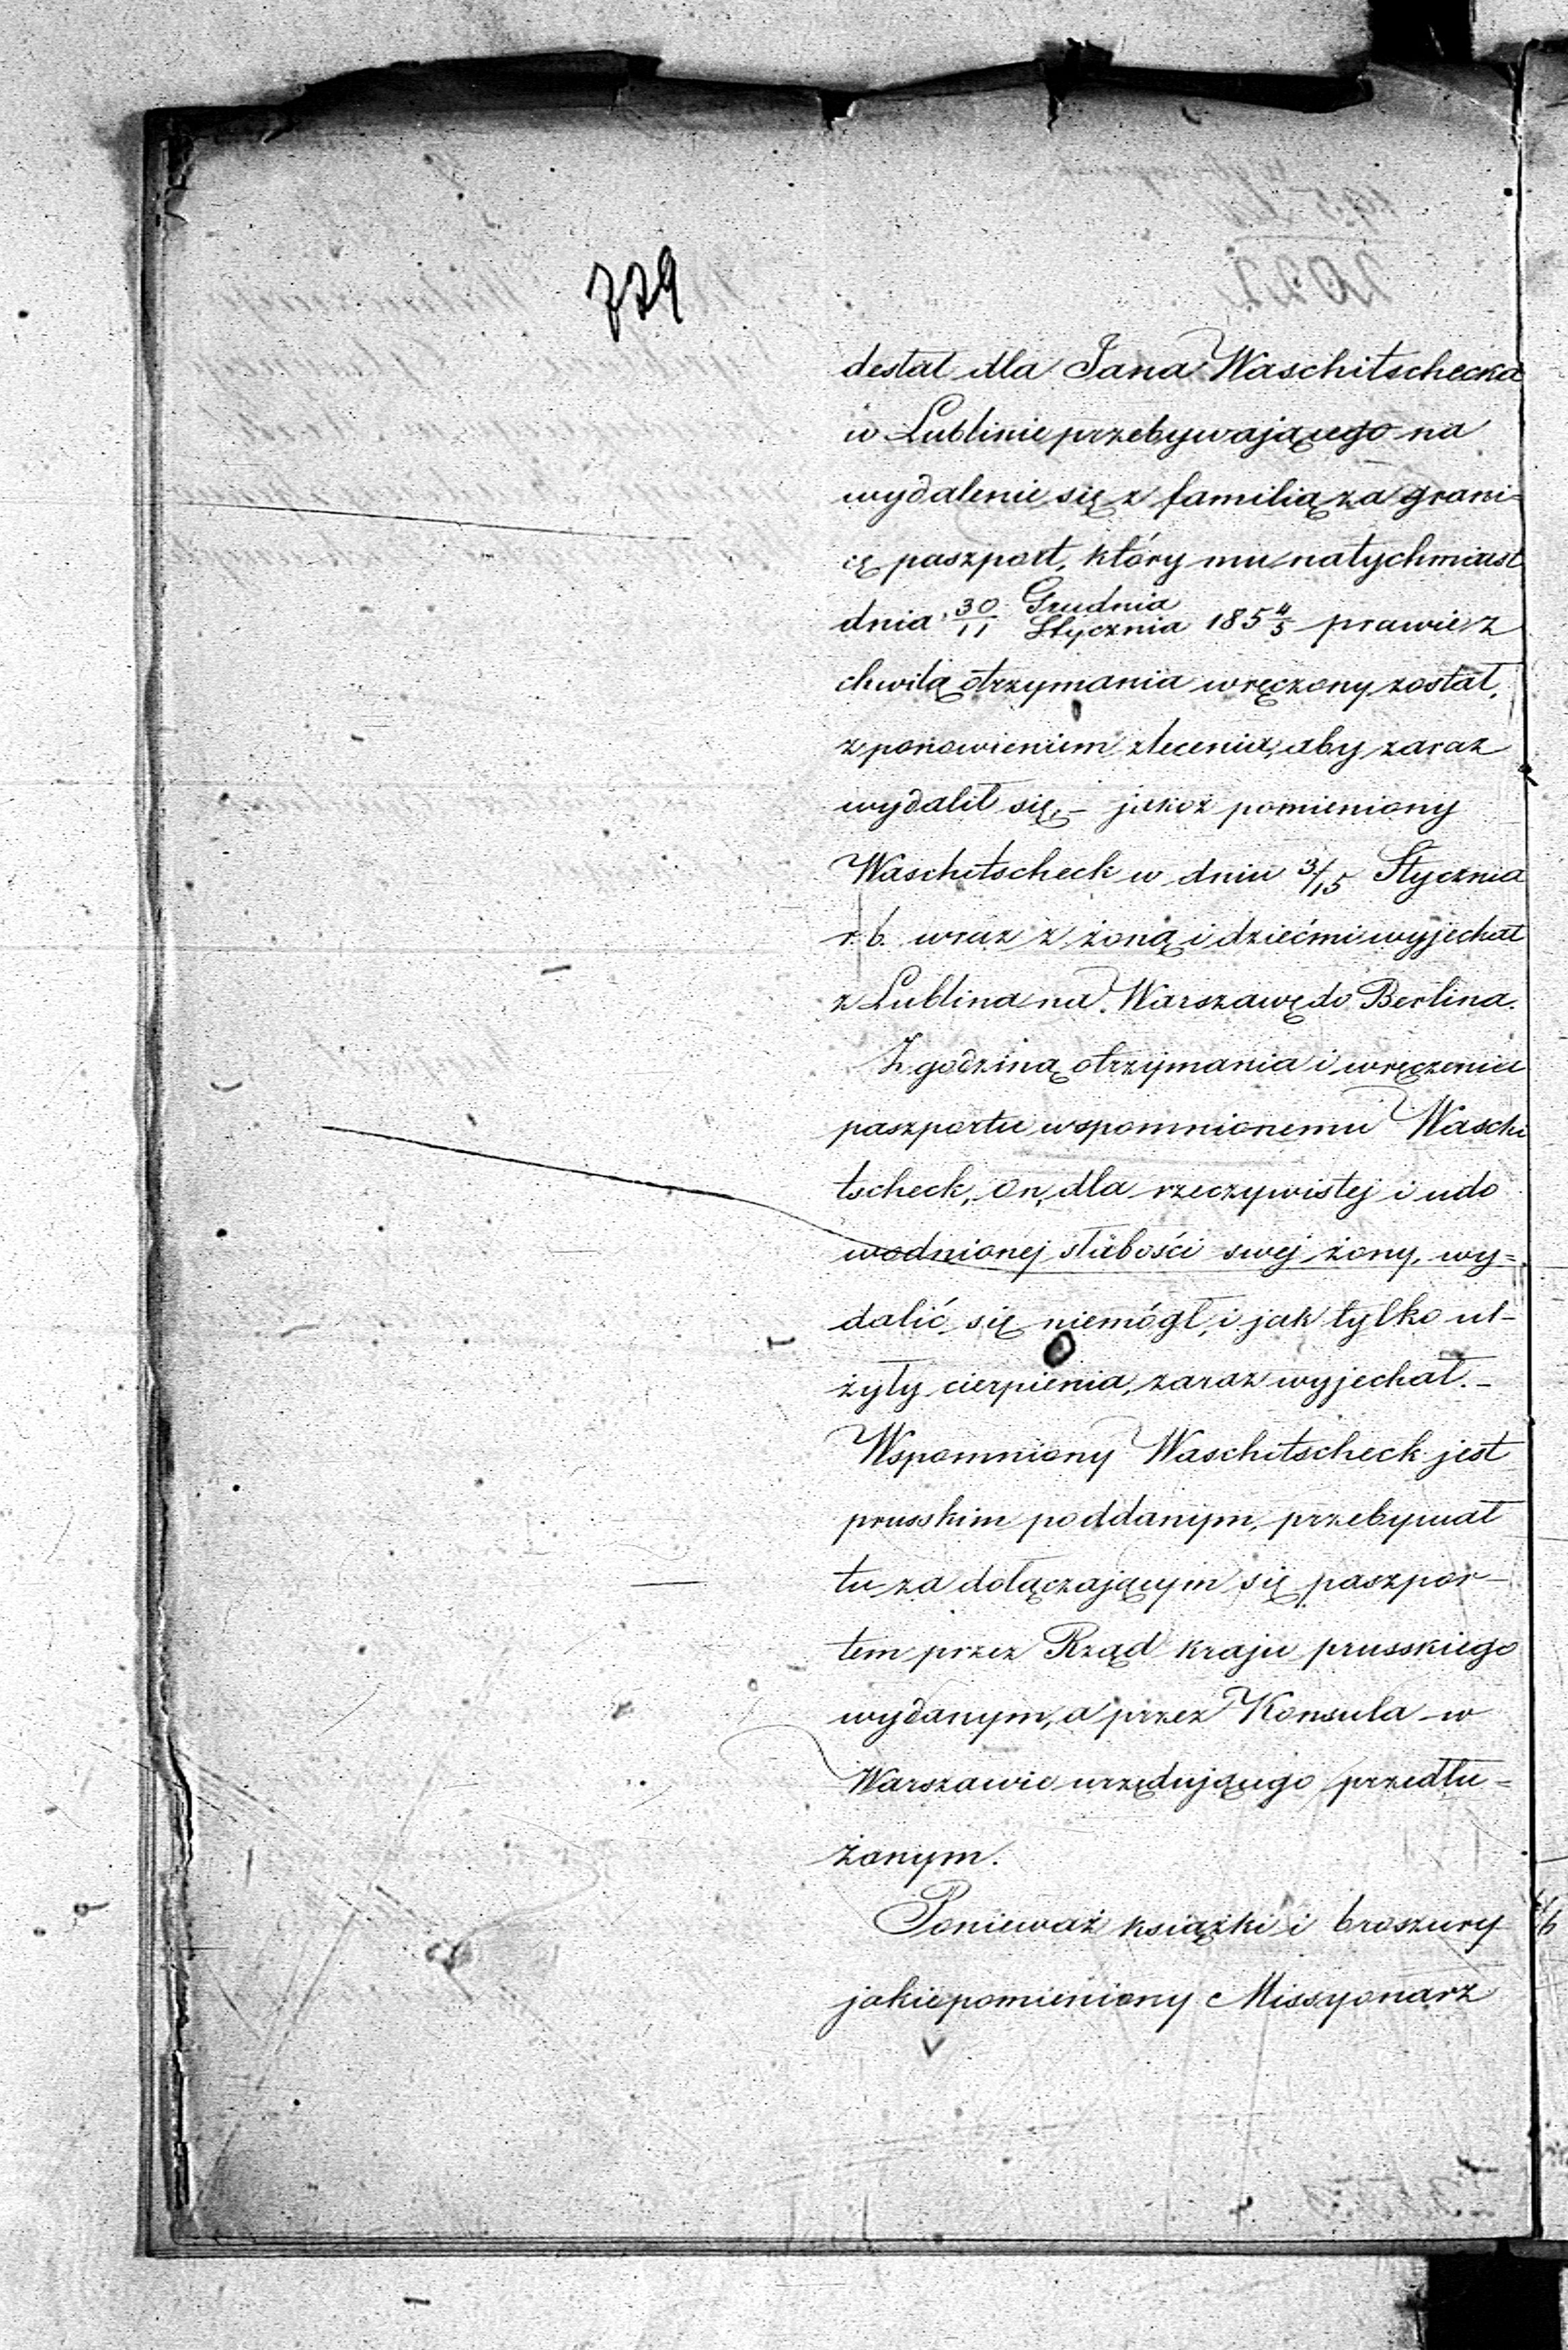 729
destał dla Jana Waschitschecka
w Lublinie przebywającego na
wydalenie się z familią za grani-
cę paszport, który mu natychmiast
dnia 30/11 Grudnia/Stycznia 185 4/5 prawie z
chwilą otrzymania wręczony został,
z ponowieniem zlecenia, aby zaraz
wydalił się, – jakoż pomieniony
Waschitscheck w dniu 3/15 Stycznia
r. b. wraz z żoną i dziećmi wyjechał
z Lublina na Warszawę do Berlina.
Z godziną otrzymania i wręczenia
paszportu wspomnionemu Waschi
tscheck, on, dla rzeczywistej i udo
wodnionej słabości swej żony, wy=
dalić się niemógł, i jak tylko ul-
żyły cierpienia, zaraz wyjechał. –
Wspomniony Waschitscheck jest
prusskim poddanym, przebywał
tu za dołączającym się paszpor-
tem przez Rząd kraju prusskiego
wydanym, a przez Konsula w
Warszawie urzędującego przedłu=
żonym.
Ponieważ książki i broszury
jakie pomieniony Missyonarz